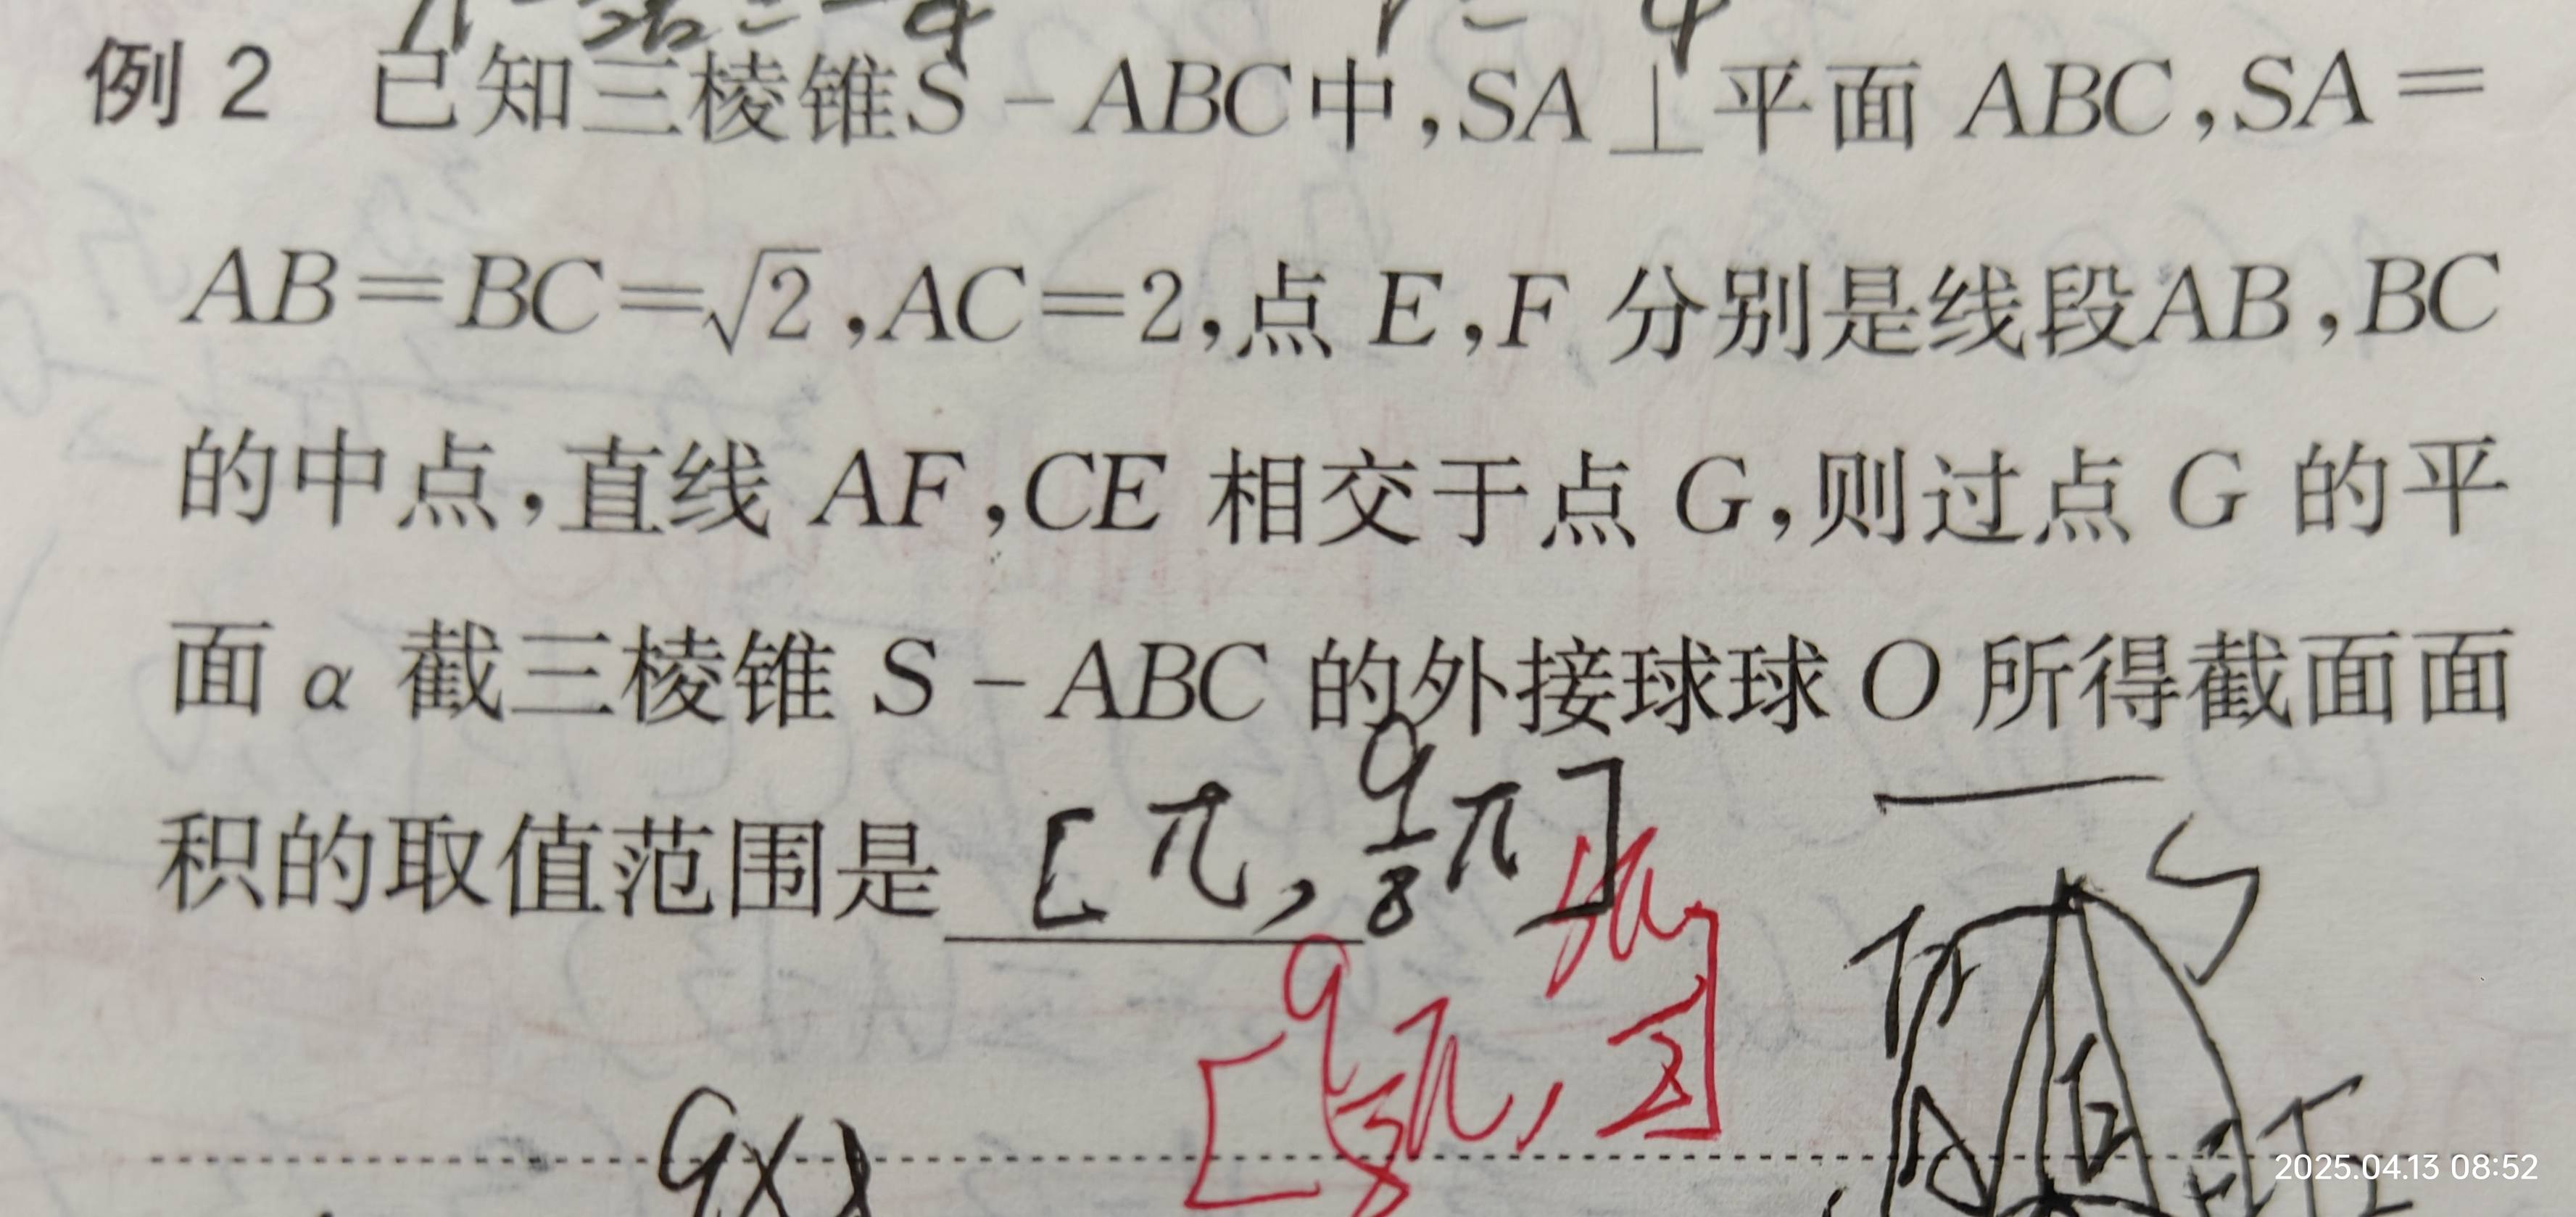 例2 已知三棱锥S-ABC中,SA⊥平面ABC,SA=
AB=BC=√2,AC=2,点E,F分别是线段AB,BC
的中点,直线AF,CE相交于点G,则过点G的平
面α截三棱锥S-ABC的外接球球O所得截面面
积的取值范围是 [π, 9/8 π]
S
2025.04.13 08:52